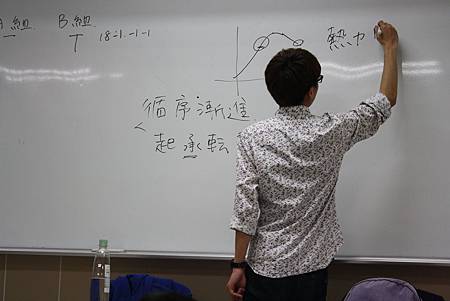 A組 B組
一 T 18-1.-1-1
熱力
循序漸進
起承転